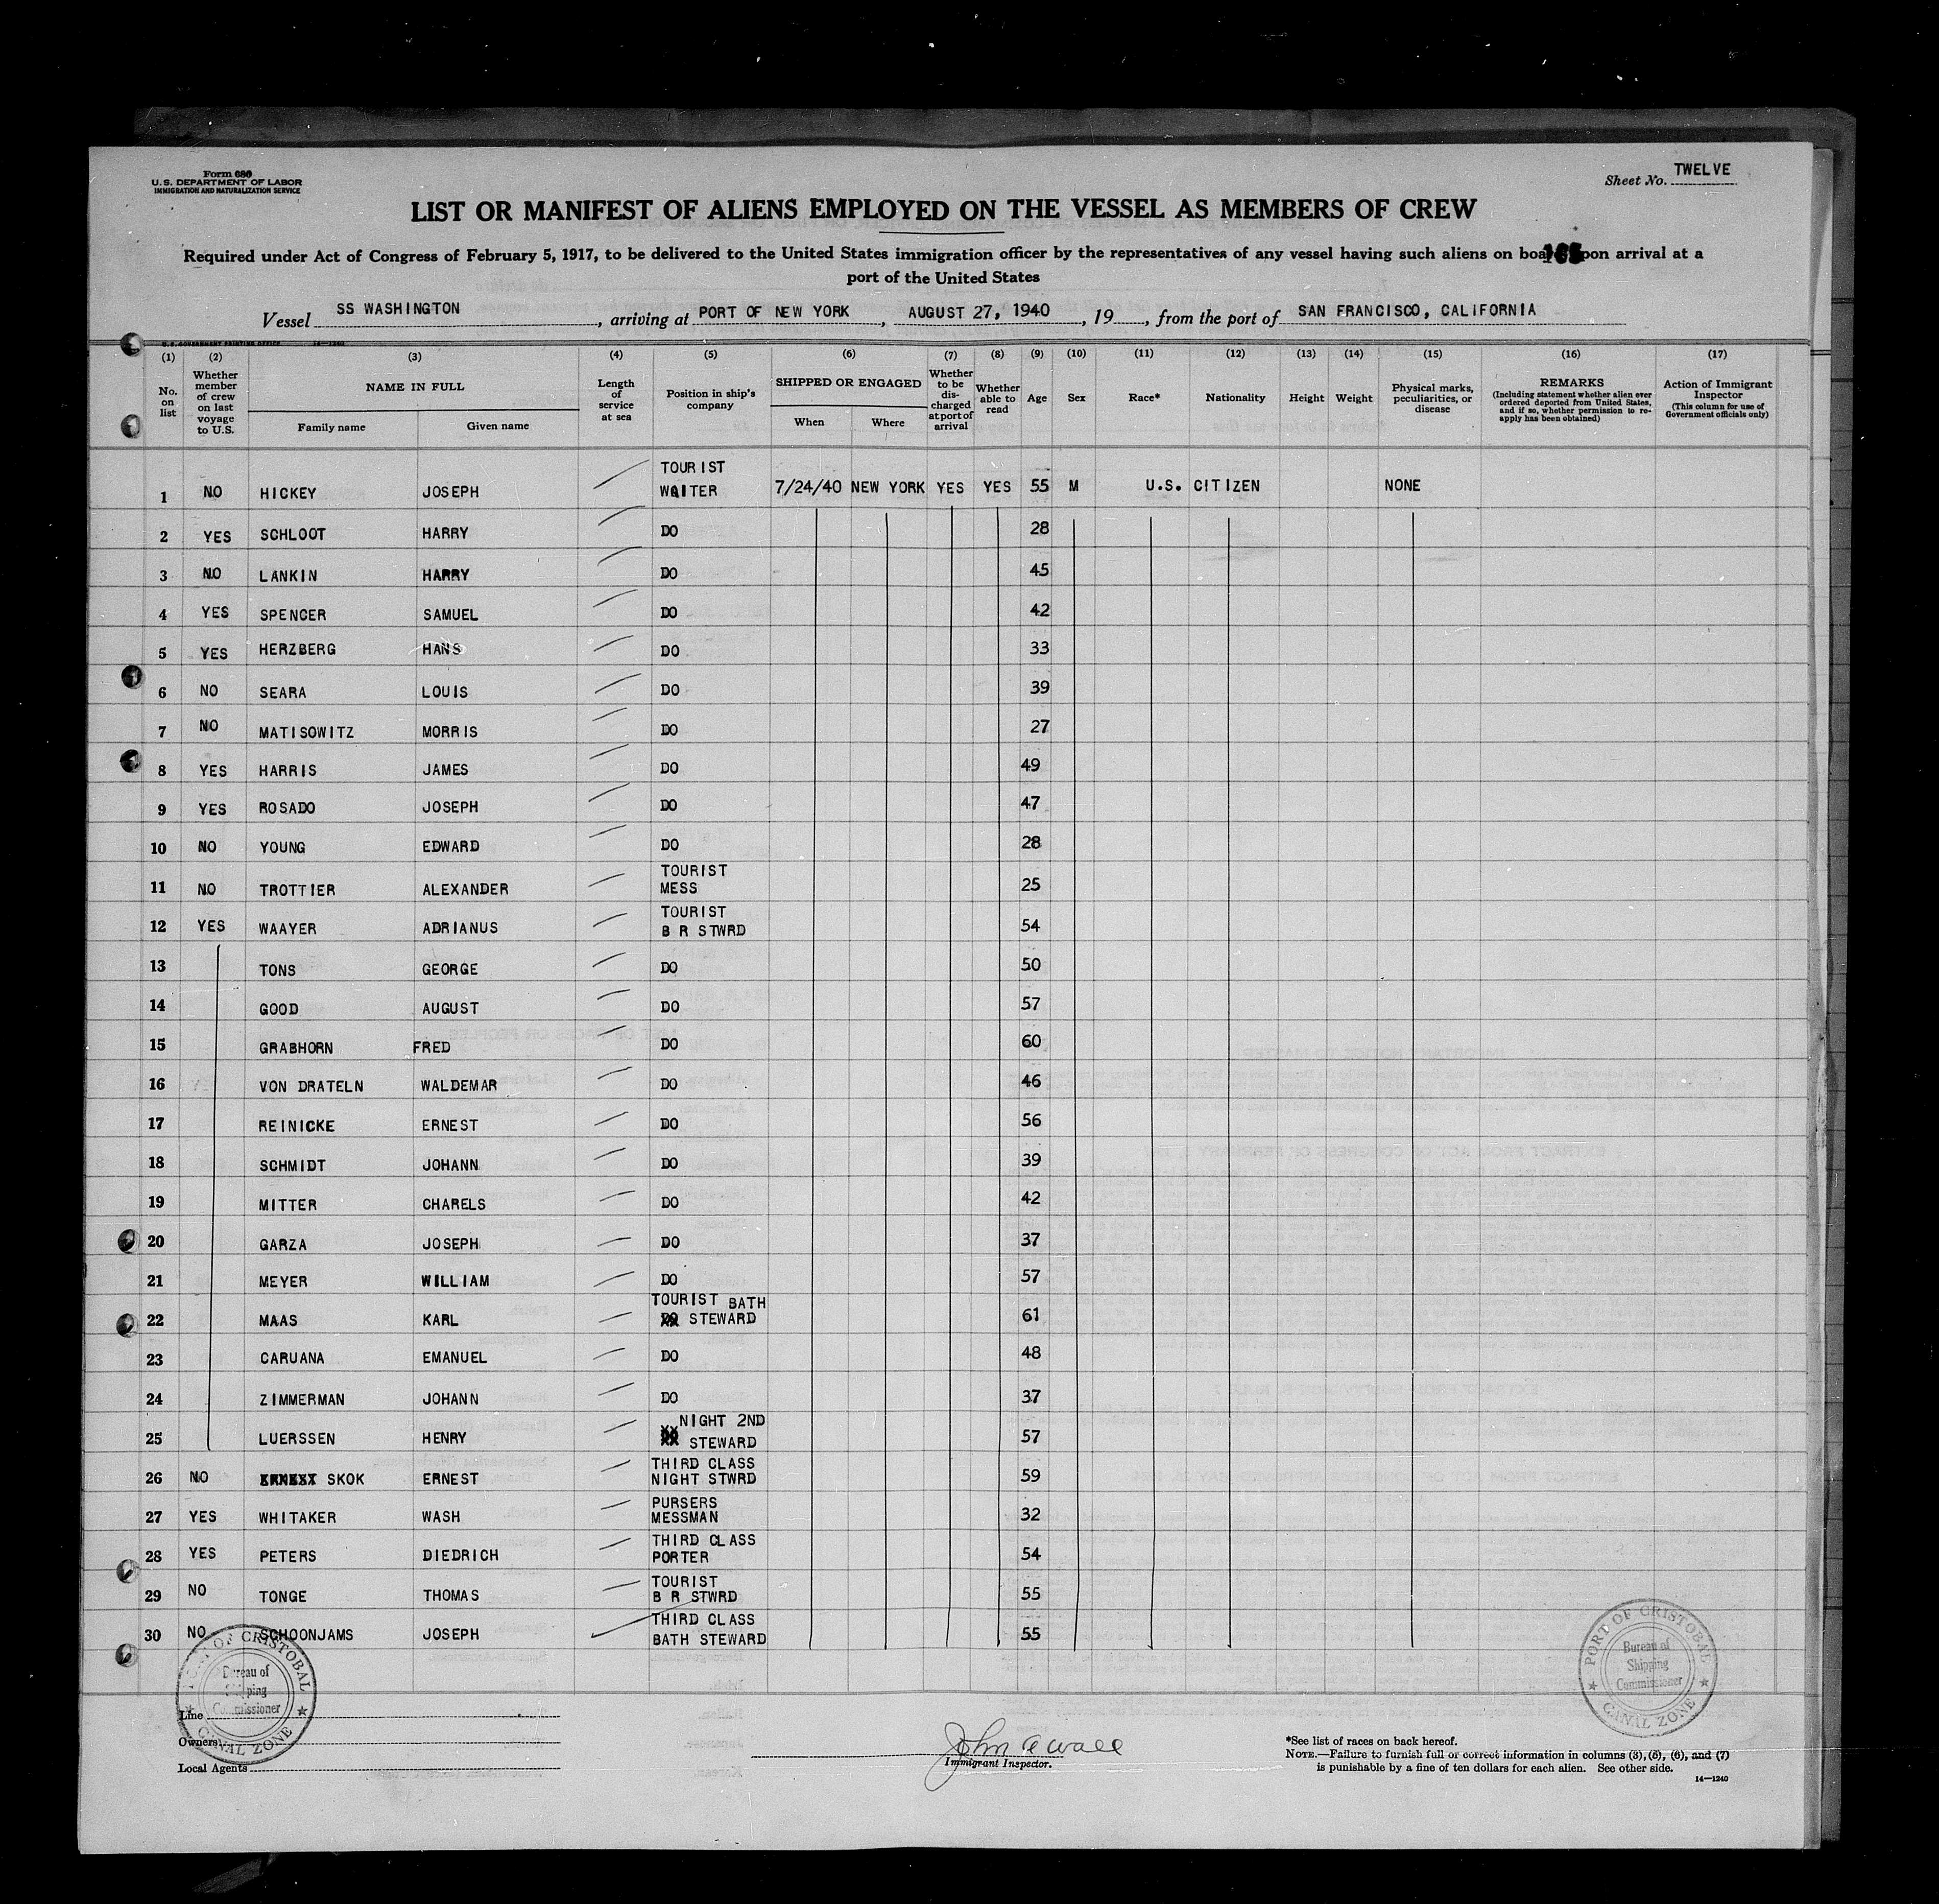 Form 680
U.S. DEPARTMENT OF LABOR
IMMIGRATION AND NATURALIZATION SERVICE
Sheet No. TWELVE
LIST OR MANIFEST OF ALIENS EMPLOYED ON THE VESSEL AS MEMBERS OF CREW
Required under Act of Congress of February 5, 1917, to be delivered to the United States immigration officer by the representatives of any vessel having such aliens on board upon arrival at a
port of the United States
Vessel SS WASHINGTON, arriving at PORT OF NEW YORK, AUGUST 27, 1940, 19, from the port of SAN FRANCISCO, CALIFORNIA
U.S. GOVERNMENT PRINTING OFFICE 14—1240
(1) (2) (3) (4) (5) (6) (7) (8) (9) (10) (11) (12) (13) (14) (15) (16) (17)
No. on list
Whether member of crew on last voyage to U.S.
NAME IN FULL
Family name Given name
Length of service at sea
Position in ship's company
SHIPPED OR ENGAGED
When Where
Whether to be discharged at port of arrival
Whether able to read
Age
Sex
Race*
Nationality
Height
Weight
Physical marks, peculiarities, or disease
REMARKS
(Including statement whether alien ever ordered deported from United States, and if so, whether permission to re-apply has been obtained)
Action of Immigrant Inspector
(This column for use of Government officials only)
1 NO HICKEY JOSEPH TOURIST WAITER 7/24/40 NEW YORK YES YES 55 M U.S. CITIZEN NONE
2 YES SCHLOOT HARRY DO 28
3 NO LANKIN HARRY DO 45
4 YES SPENCER SAMUEL DO 42
5 YES HERZBERG HANS DO 33
6 NO SEARA LOUIS DO 39
7 NO MATISOWITZ MORRIS DO 27
8 YES HARRIS JAMES DO 49
9 YES ROSADO JOSEPH DO 47
10 NO YOUNG EDWARD DO 28
11 NO TROTTIER ALEXANDER TOURIST MESS 25
12 YES WAAYER ADRIANUS TOURIST B R STWRD 54
13 TONS GEORGE DO 50
14 GOOD AUGUST DO 57
15 GRABHORN FRED DO 60
16 VON DRATELN WALDEMAR DO 46
17 REINICKE ERNEST DO 56
18 SCHMIDT JOHANN DO 39
19 MITTER CHARELS DO 42
20 GARZA JOSEPH DO 37
21 MEYER WILLIAM DO 57
22 MAAS KARL TOURIST BATH STEWARD 61
23 CARUANA EMANUEL DO 48
24 ZIMMERMAN JOHANN DO 37
25 LUERSSEN HENRY NIGHT 2ND STEWARD 57
26 NO SKOK ERNEST THIRD CLASS NIGHT STWRD 59
27 YES WHITAKER WASH PURSERS MESSMAN 32
28 YES PETERS DIEDRICH THIRD CLASS PORTER 54
29 NO TONGE THOMAS TOURIST B R STWRD 55
30 NO SCHOONJAMS JOSEPH THIRD CLASS BATH STEWARD 55
PORT OF CRISTOBAL
Bureau of
Shipping
Commissioner
CANAL ZONE
PORT OF CRISTOBAL
Bureau of
Shipping
Commissioner
CANAL ZONE
Line
Owners
Local Agents
Immigrant Inspector.
*See list of races on back hereof.
NOTE.—Failure to furnish full or correct information in columns (3), (5), (6), and (7)
is punishable by a fine of ten dollars for each alien. See other side.
14—1240